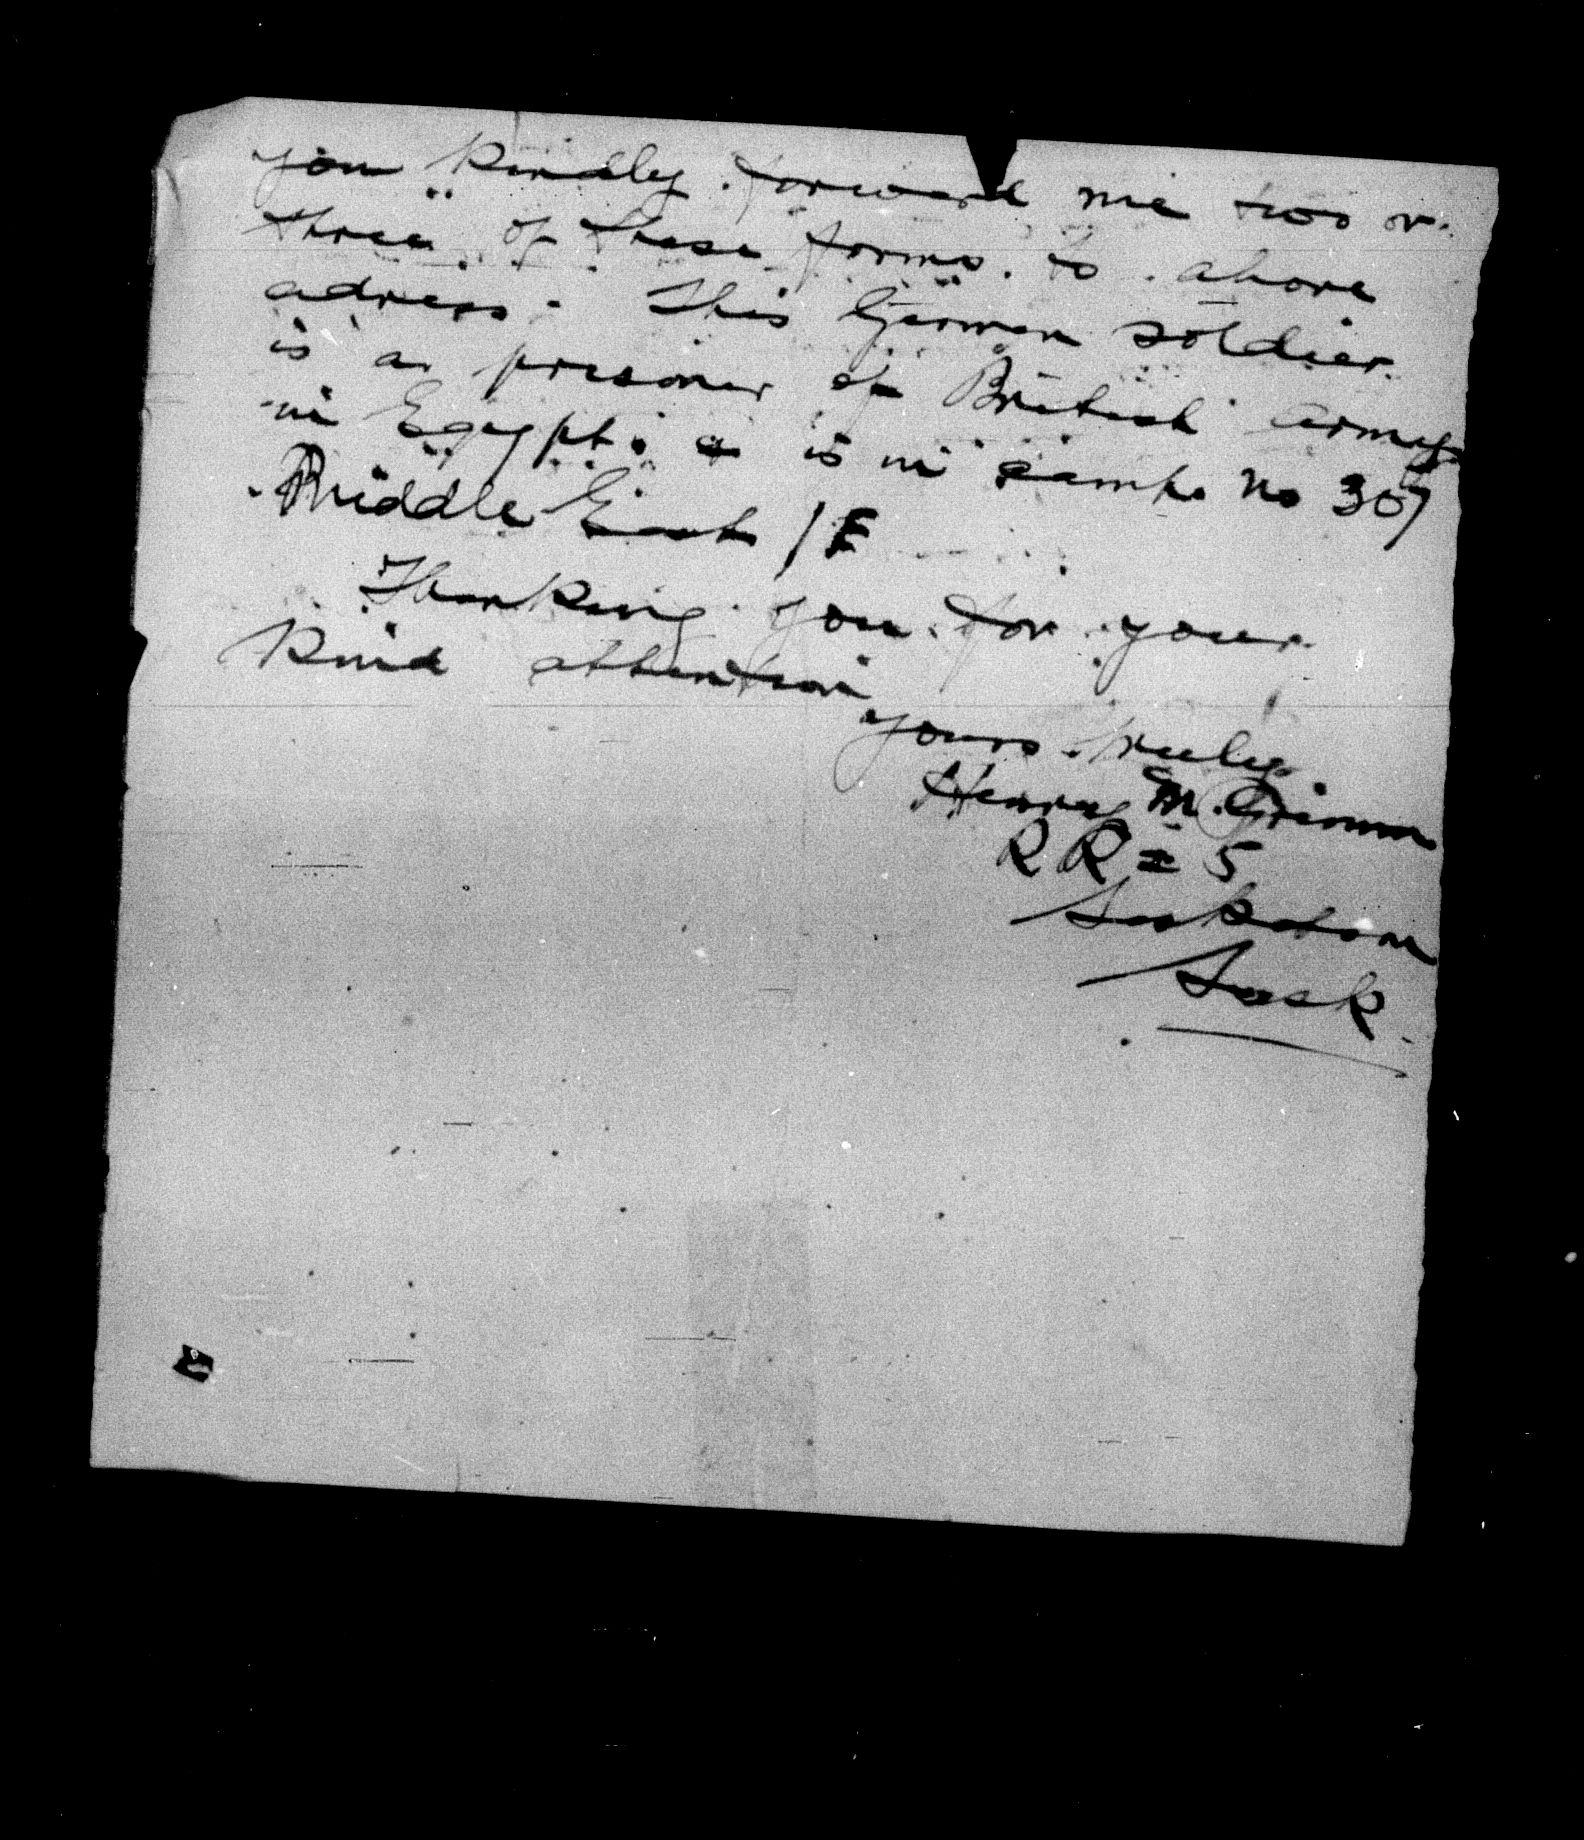 you kindly forward me two or
three of these forms to above
adress. This German soldier
is a prisoner of British army
in Egypt. & is in camp. No 307
Middle East / E
Thanking you for your
Kind attention
yours truly
Henry M. Grimm
R R # 5
Saskatoon
Sask.